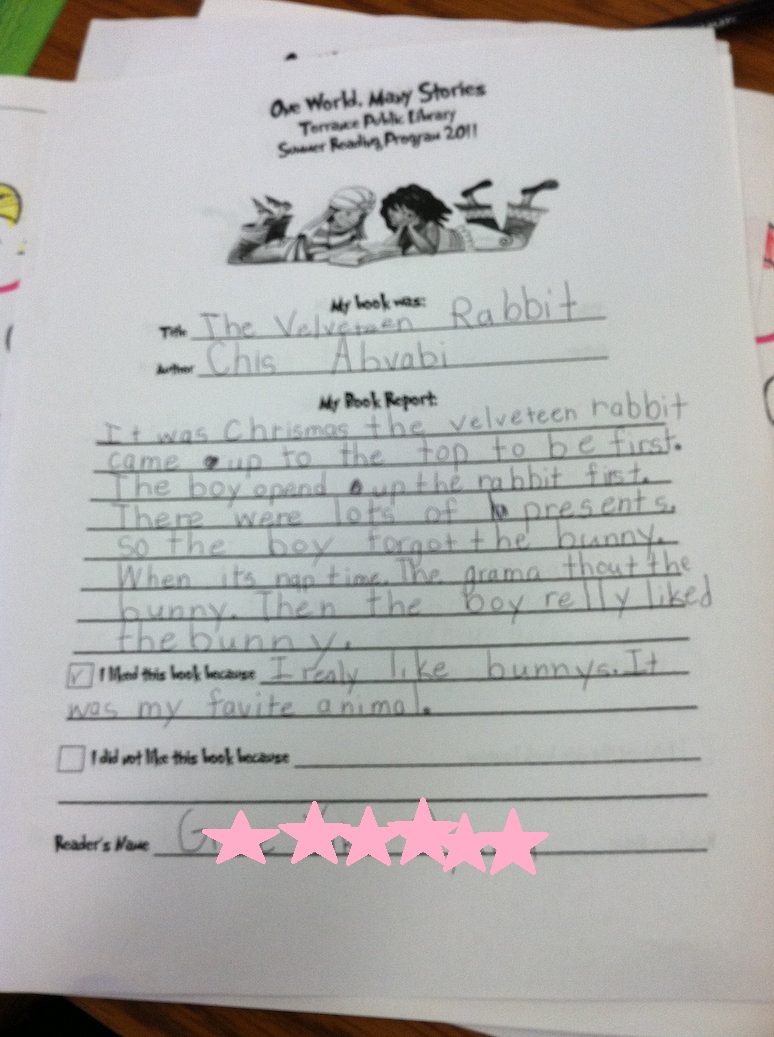 One World, Many Stories
Torrance Public Library
Summer Reading Program 2011
My book was:
Title The Velveteen Rabbit
Author Chis Abvabi
My Book Report:
It was Chrismas the velveteen rabbit
came up to the top to be first.
The boy opend up the rabbit first.
There were lots of presents.
so the boy forgot the bunny.
When its nap time. The grama thout the
bunny. Then the boy really liked
the bunny.
I liked this book because I realy like bunnys. It
was my favite animal.
I did not like this book because
Reader's Name